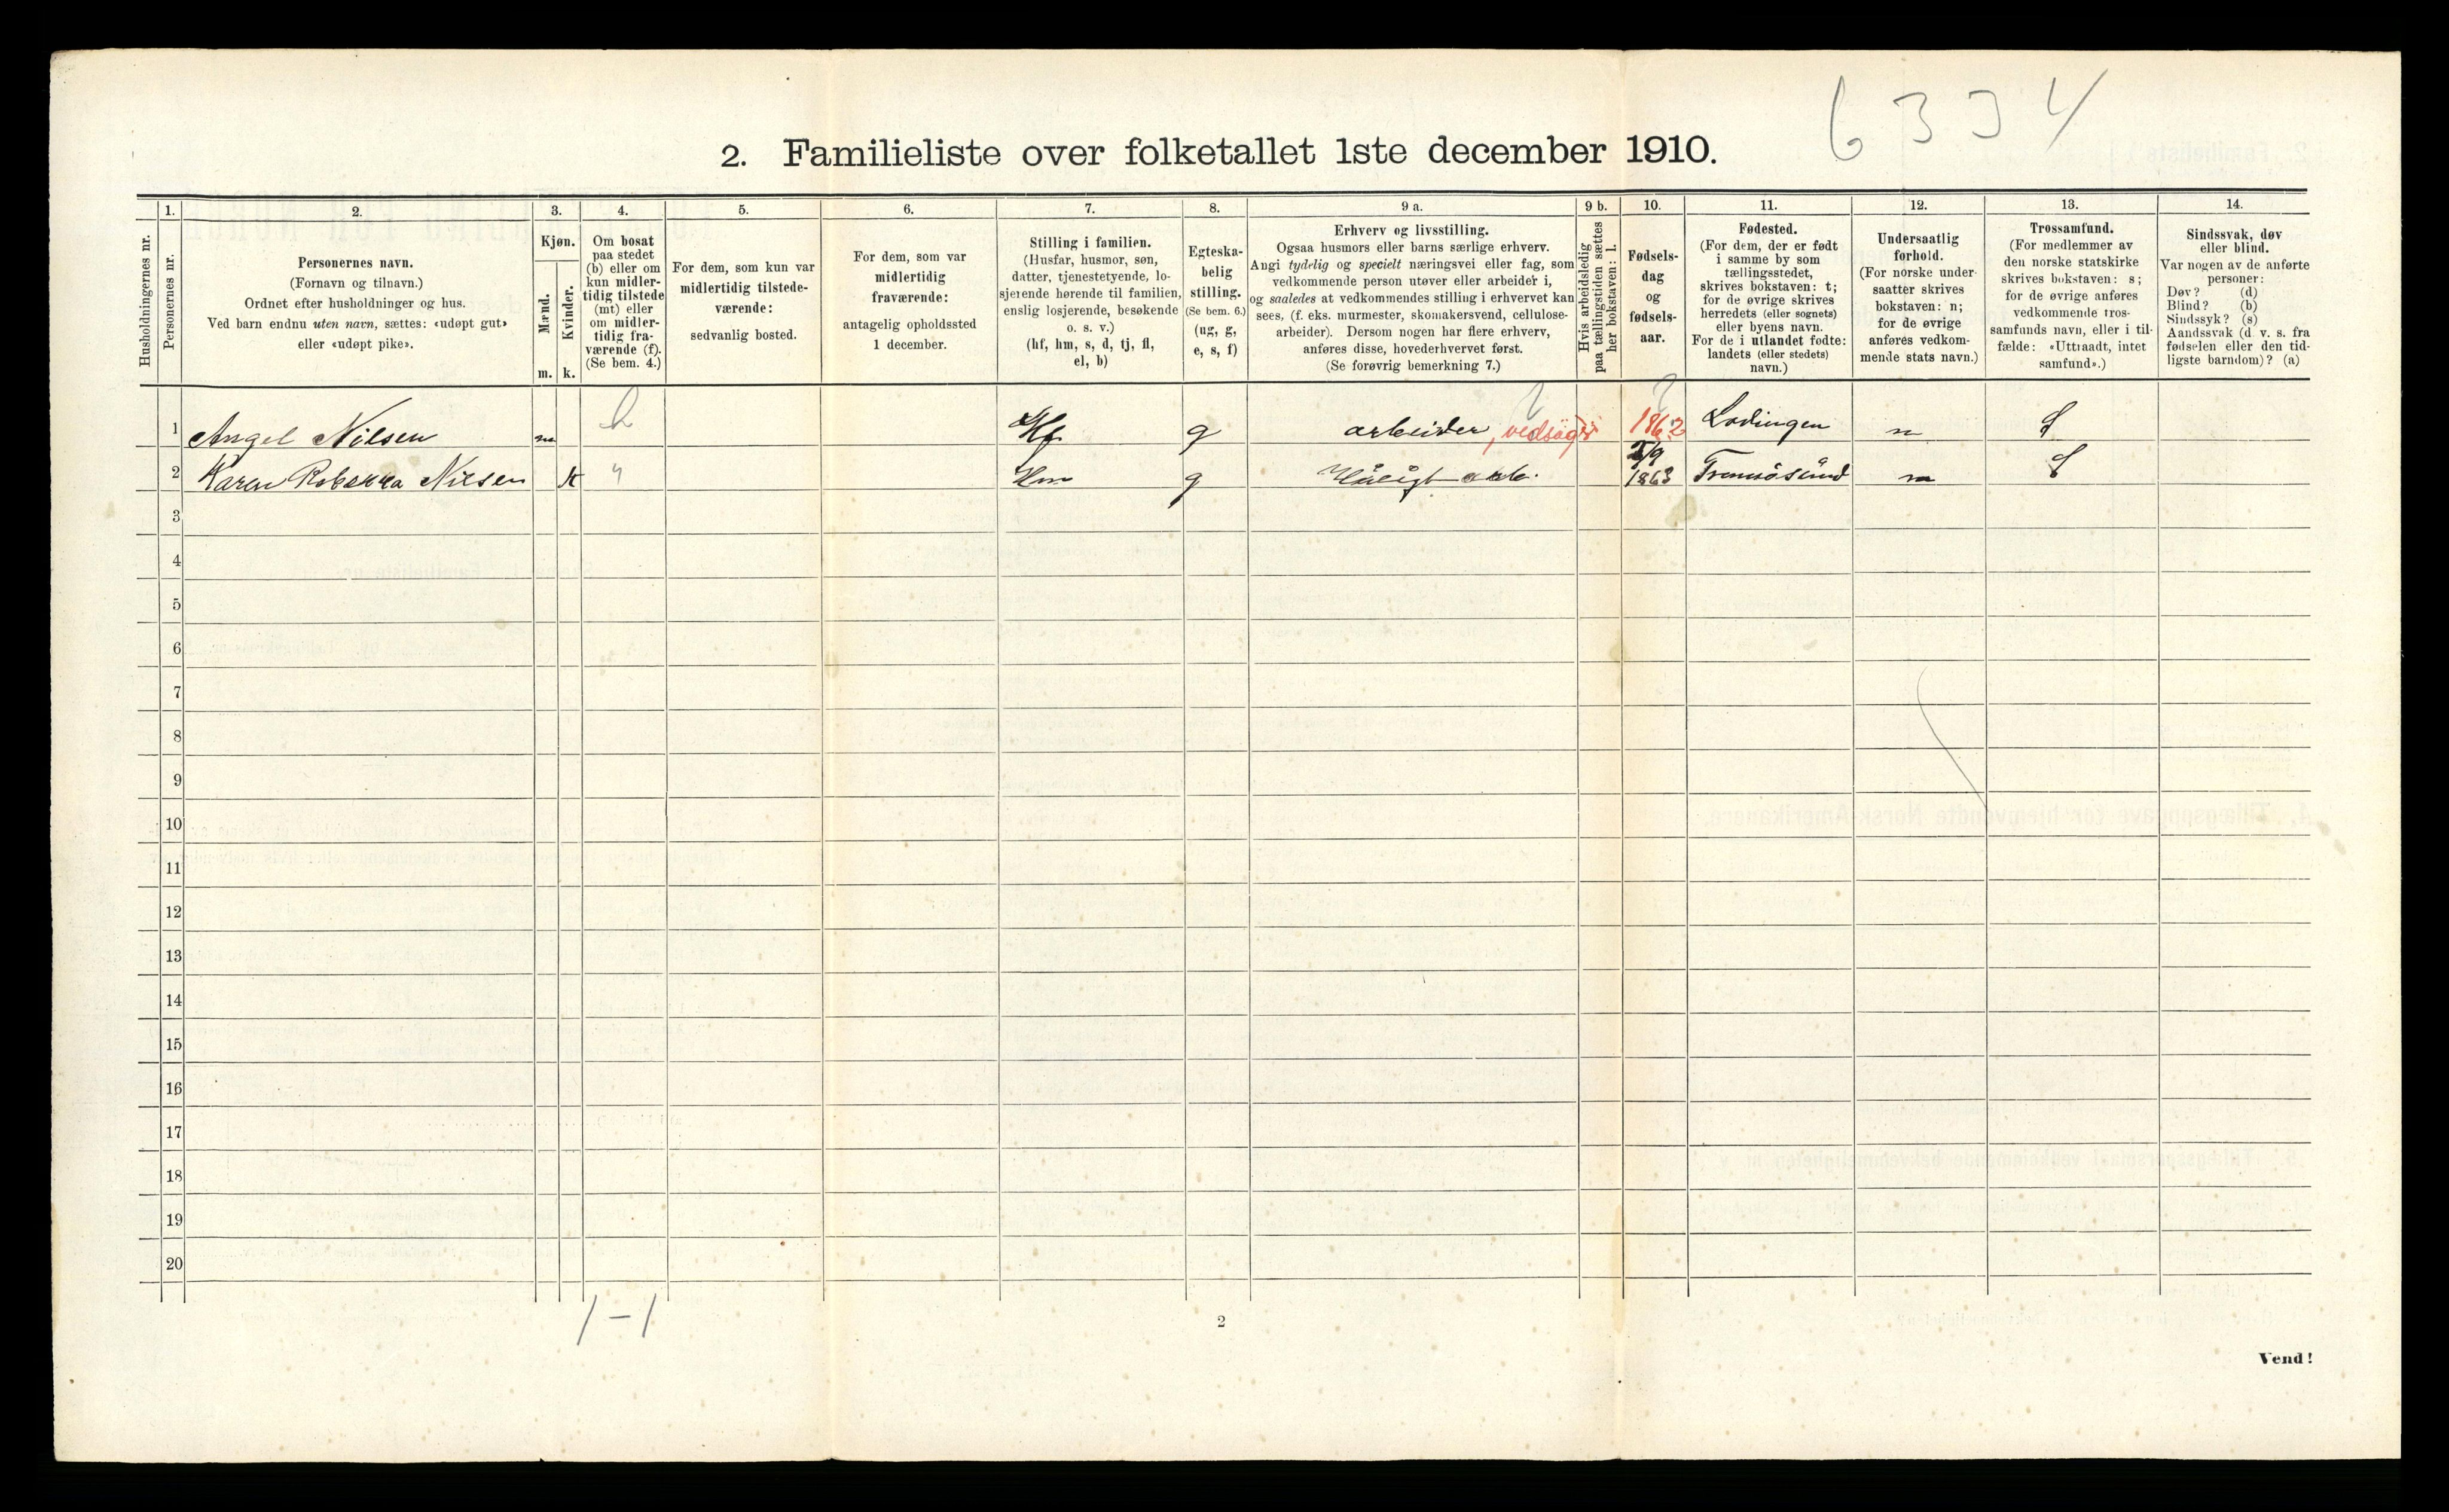 6334
2. Familieliste over folketallet 1ste december 1910.
Husholdningernes nr.
1.
Personernes nr.
2.
Personernes navn.
(Fornavn og tilnavn.)
Ordnet efter husholdninger og hus.
Ved barn endnu uten navn, sættes: «udøpt gut»
eller «udøpt pike».
3.
Kjøn.
Mænd.
Kvinder.
m. k.
4.
Om bosat
paa stedet
(b) eller om
kun midler-
tidig tilstede
(mt) eller
om midler-
tidig fra-
værende (f).
(Se bem. 4.)
5.
For dem, som kun var
midlertidig tilstede-
værende:
sedvanlig bosted.
6.
For dem, som var
midlertidig
fraværende:
antagelig opholdssted
1 december.
7.
Stilling i familien.
(Husfar, husmor, søn,
datter, tjenestetyende, lo-
sjerende hørende til familien,
enslig losjerende, besøkende
o. s. v.)
(hf, hm, s, d, tj, fl,
el, b)
8.
Egteska-
belig
stilling.
(Se bem. 6.)
(ug, g,
e, s, f)
9 a.
Erhverv og livsstilling.
Ogsaa husmors eller barns særlige erhverv.
Angi tydelig og specielt næringsvei eller fag, som
vedkommende person utøver eller arbeider i,
og saaledes at vedkommendes stilling i erhvervet kan
sees, (f. eks. murmester, skomakersvend, cellulose-
arbeider). Dersom nogen har flere erhverv,
anføres disse, hovederhvervet først.
(Se forøvrig bemerkning 7.)
9 b.
Hvis arbeidsledig
paa tællingstiden sættes
her bokstaven: l.
10.
Fødsels-
dag
og
fødsels-
aar.
11.
Fødested.
(For dem, der er født
i samme by som
tællingsstedet,
skrives bokstaven: t;
for de øvrige skrives
herredets (eller sognets)
eller byens navn.
For de i utlandet fødte:
landets (eller stedets)
navn.)
12.
Undersaatlig
forhold.
(For norske under-
saatter skrives
bokstaven: n;
for de øvrige
anføres vedkom-
mende stats navn.)
13.
Trossamfund.
(For medlemmer av
den norske statskirke
skrives bokstaven: s;
for de øvrige anføres
vedkommende tros-
samfunds navn, eller i til-
fælde: «Uttraadt, intet
samfund».)
14.
Sindssvak, døv
eller blind.
Var nogen av de anførte
personer:
Døv? (d)
Blind? (b)
Sindssyk? (s)
Aandssvak (d. v. s. fra
fødselen eller den tid-
ligste barndom)? (a)
1 Angel Nilsen m b Hf g arbeider, vedsager ? 1862 Lodingen n S
2 Karen Rebekka Nilsen k Hm g 1863 Tromsösund n S
3
4
5
6
7
8
9
10
11
12
13
14
15
16
17
18
19
20
1-1
2
Vend!